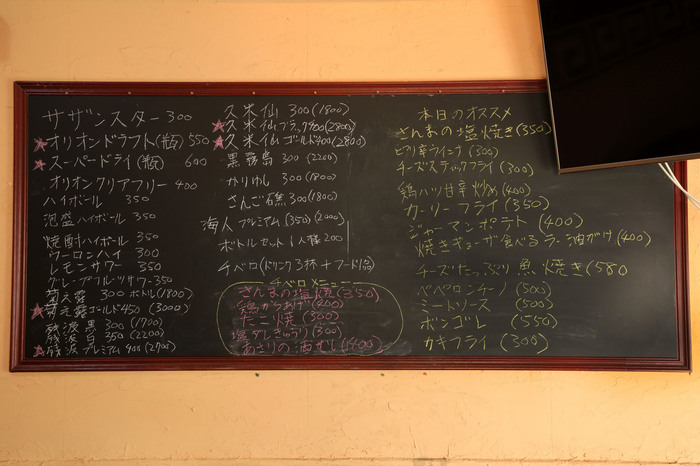 サザンスター 300
オリオンドラフト(瓶) 550
スーパードライ(瓶) 600
オリオンクリアフリー 400
ハイボール 350
泡盛ハイボール 350
焼酎ハイボール 350
ウーロンハイ 300
レモンサワー 350
グレープフルーツサワー 350
菊之露 300 ボトル(1800)
菊之露ゴールド450 (3000)
残波 黒 300 (1700)
残波 白 350 (2200)
残波 プレミアム 400 (2700)
久米仙 300 (1800)
久米仙ブラック400(2800)
久米仙ゴールド400(2800)
黒霧島 300 (2200)
かりゆし 300 (1800)
さんご礁 300(1800)
海人プレミアム(350)(2000)
ボトルセット 1人様 200
チベロ(ドリンク3杯+フード1品)
チベロメニュー
さんまの塩焼(350)
鶏からあげ(400)
たこ焼(300)
塩ダレきゅうり(300)
あさりの酒むし(400)
本日のオススメ
さんまの塩焼き(350)
ピリ辛ウインナ(300)
チーズスティックフライ(300)
鶏ハツ甘辛炒め(400)
カーリーフライ(350)
ジャーマンポテト(400)
焼きギョーザ食べるラー油がけ(400)
チーズたっぷり魚焼き(580
ペペロンチーノ(500)
ミートソース(500)
ボンゴレ(550)
カキフライ(300)